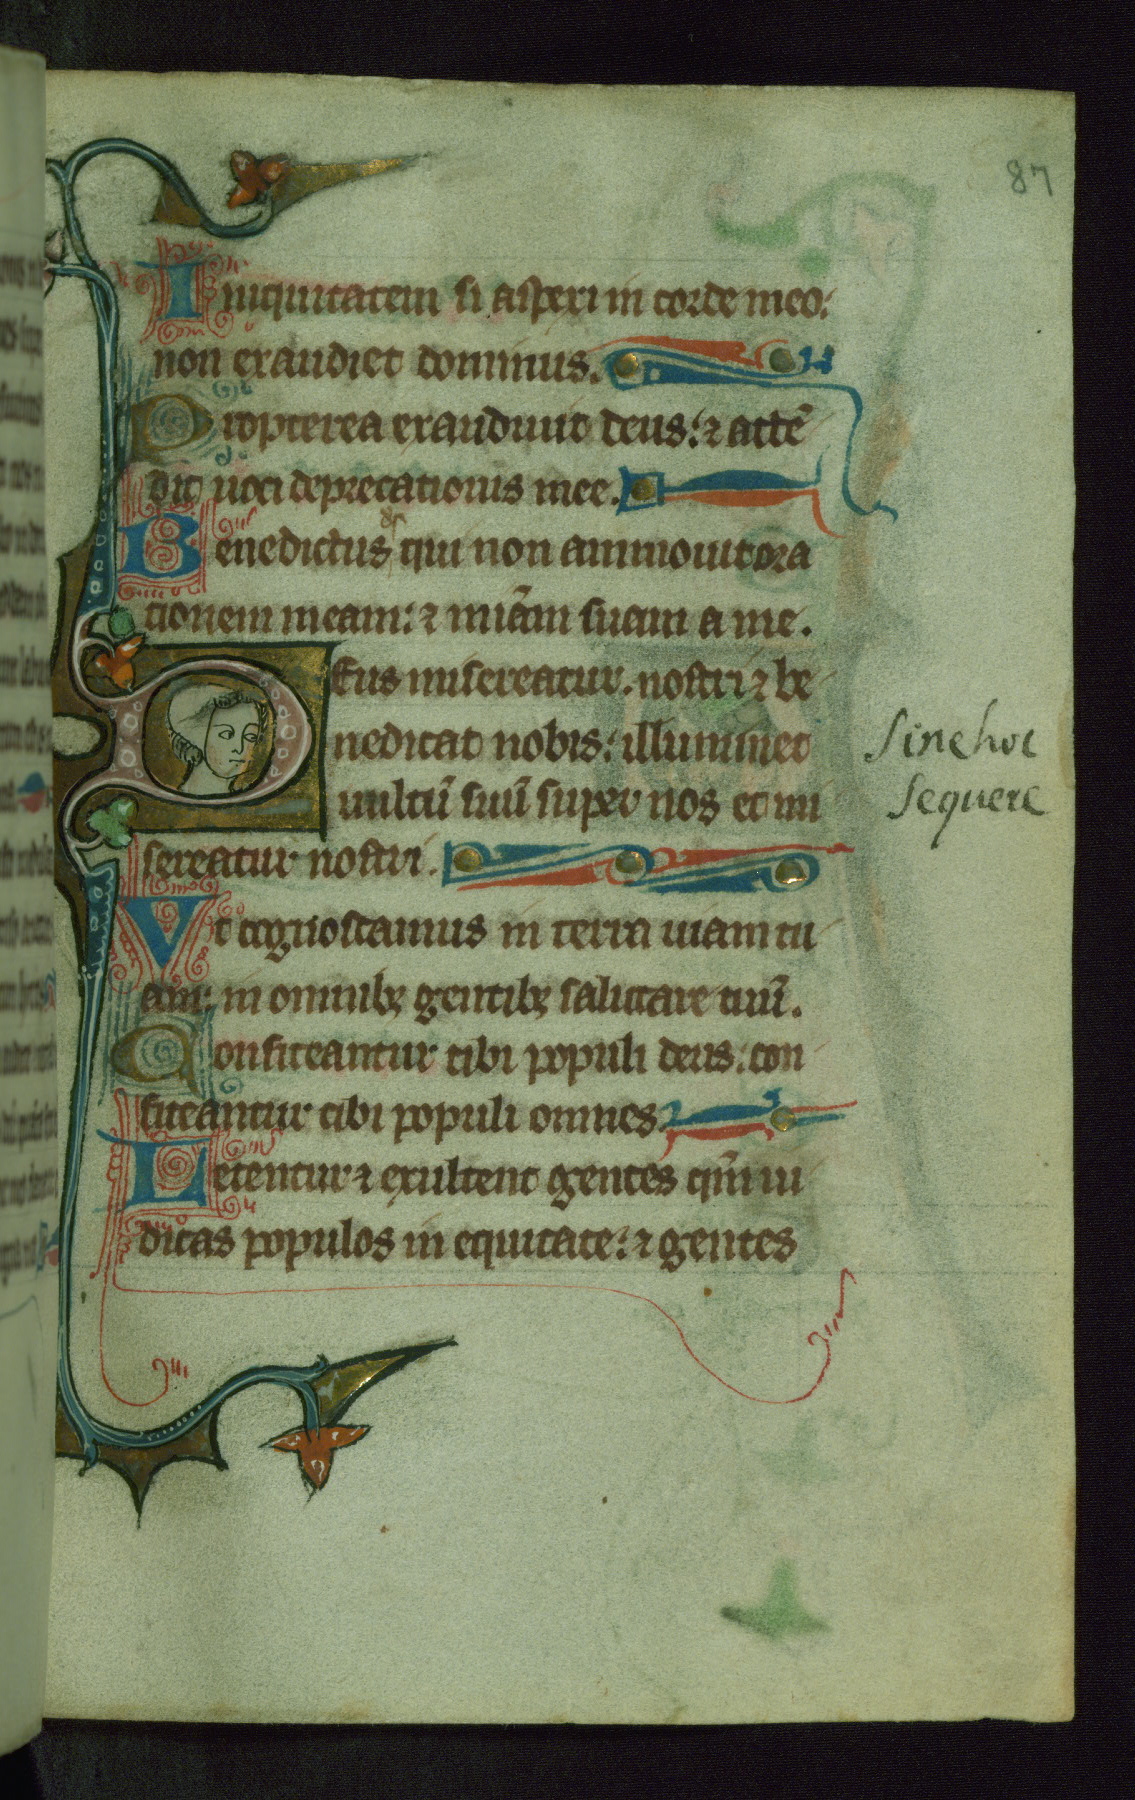 87
Iniquitatem si aspexi in corde meo:
non exaudiet dominus.
Propterea exaudiuit deus: ⁊ attē
dit uoci deprecationis mee.
Benedictus ds qui non ammouit ora
tionem meam: ⁊ miām suam a me.
Deus misereatur nostri ⁊ be
nedicat nobis: illuminet
uultū suū super nos et mi
sereatur nostri.
Vt cognoscamus in terra uiam tu
am: in omnibꝫ gentibꝫ salutare tuū.
Confiteantur tibi populi deus: con
fiteantur tibi populi omnes.
Letentur ⁊ exultent gentes qm̄ iu
dicas populos in equitate: ⁊ gentes
Sine hoc
sequere